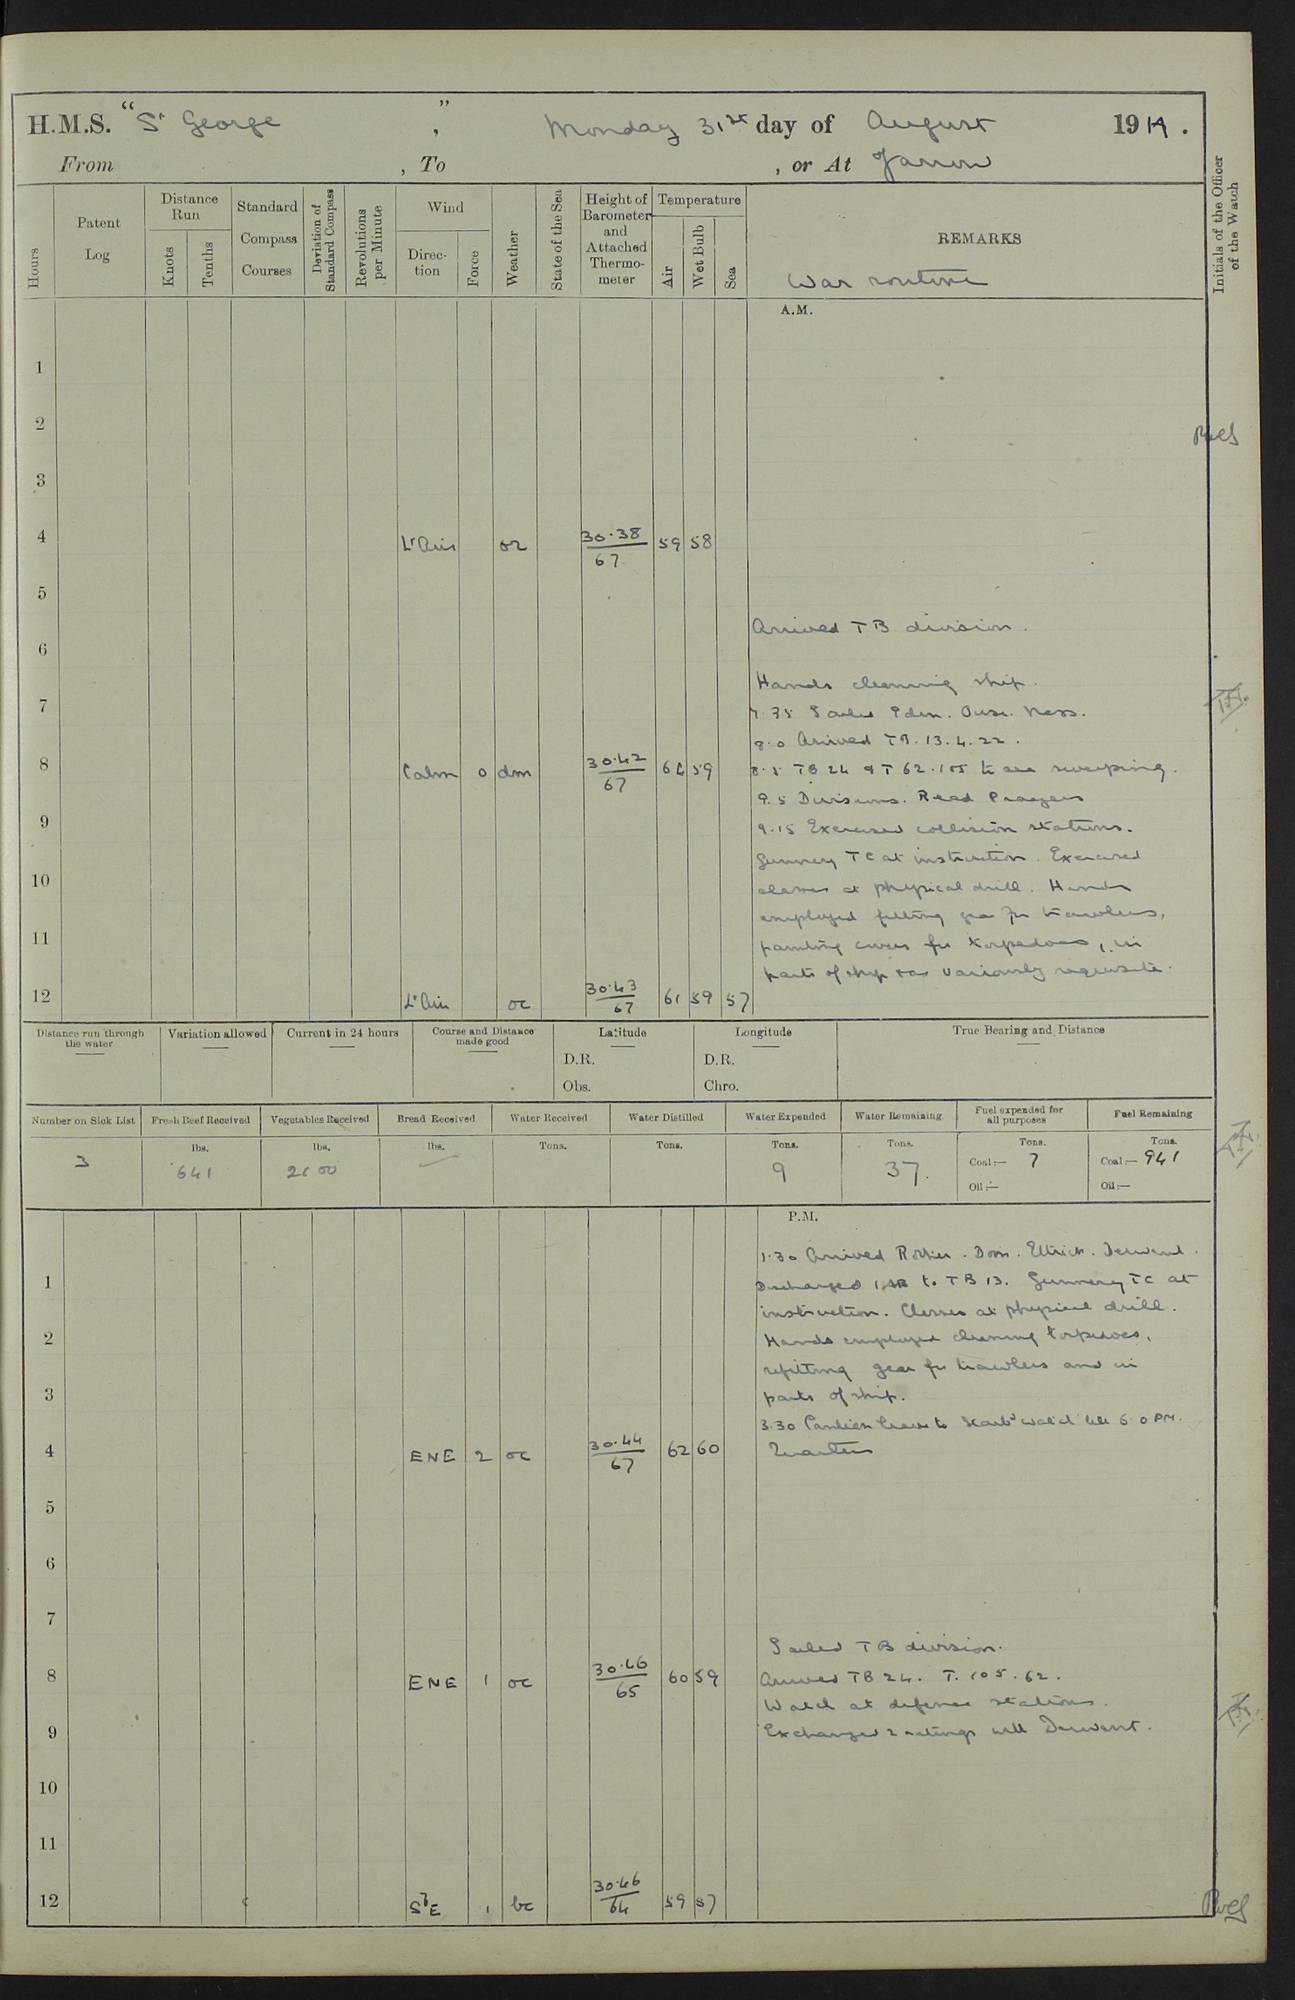 H.M.S. "St George", Monday 31st day of August 1914.
From , To , or At Jarrow
Hours
Patent Log
Distance Run
Knots
Tenths
Standard Compass Courses
Deviation of Standard Compass
Revolutions per Minute
Wind
Direction
Force
Weather
State of the Sea
Height of Barometer and Attached Thermometer
Temperature
Air
Wet Bulb
Sea
REMARKS
War routine
Initials of the Officer of the Watch
A.M.
1
2
3
4 Lt Airs 30.38 67 59 58
5
Arrived TB division.
6
Hands cleaning ship.
7
7.35 Sailed Eden. Ouse. Ness.
8.0 Arrived TB. 13. 4. 22.
8 Calm 0 30.42 67 64 59 8.5 TB 24 & T 62. 105 to sea sweeping.
9.5 Divisions. Read Prayers
9 9.15 Exercised collision stations.
Gunnery TC at instruction. Exercised
10 classes at physical drill. Hands
employed fitting gear for trawlers,
11 painting covers for torpedoes, in
parts of ship & as variously requisite.
12 Lt Air oc 30.43 67 61 59 57
Distance run through the water
Variation allowed
Current in 24 hours
Course and Distance made good
Latitude
D.R.
Obs.
Longitude
D.R.
Chro.
True Bearing and Distance
Number on Sick List
Fresh Beef Received
Vegetables Received
Bread Received
Water Received
Water Distilled
Water Expended
Water Remaining
Fuel expended for all purposes
Fuel Remaining
3
lbs. 641
lbs.
lbs.
Tons.
Tons.
Tons. 9
Tons. 37.
Tons. Coal:— 7 Oil:—
Tons. Coal:— 941 Oil:—
P.M.
1.30 Arrived Rother. Doon. Ettrick. Derwent.
1 Discharged 1 AB to TB 13. Gunnery TC at
instruction. Classes at physical drill.
2 Hands employed cleaning torpedoes,
refitting gear for trawlers and in
3 parts of ship.
3.30 leave to Starbd watch till 6.0 PM.
4 ENE 2 oc 30.44 67 62 60 Quarters
5
6
7
Sailed TB division.
8 ENE 1 oc 30.46 65 60 59 Arrived TB 24. T. 105. 62.
Watch at defence stations.
9 Exchanged 2 ratings with Derwent.
10
11
12 SbE 1 bc 30.46 64 59 57